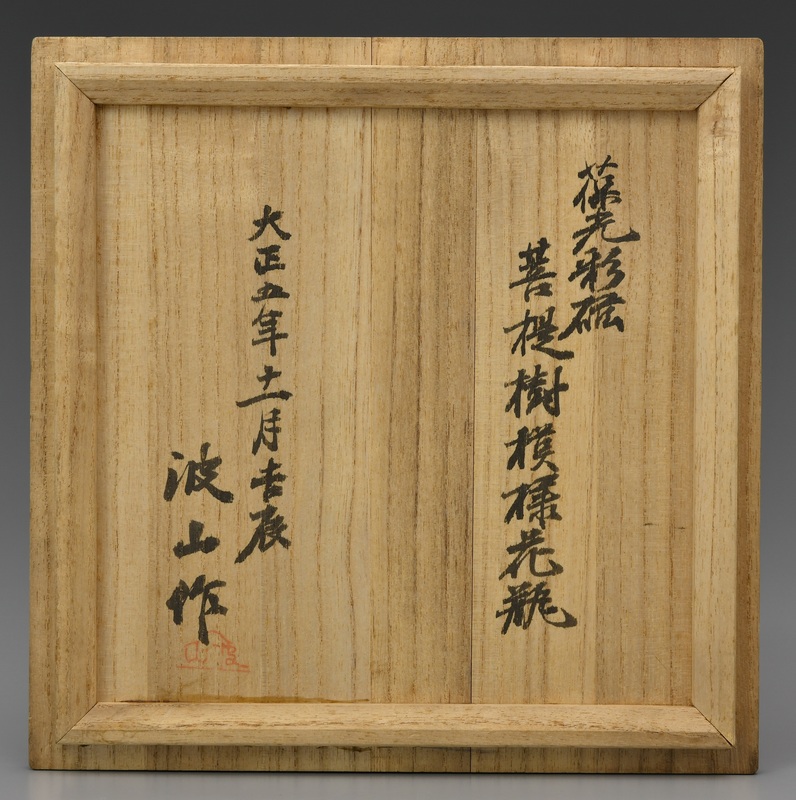 葆光彩磁
菩提樹模様花瓶
大正五年十一月吉辰
波山作
波山